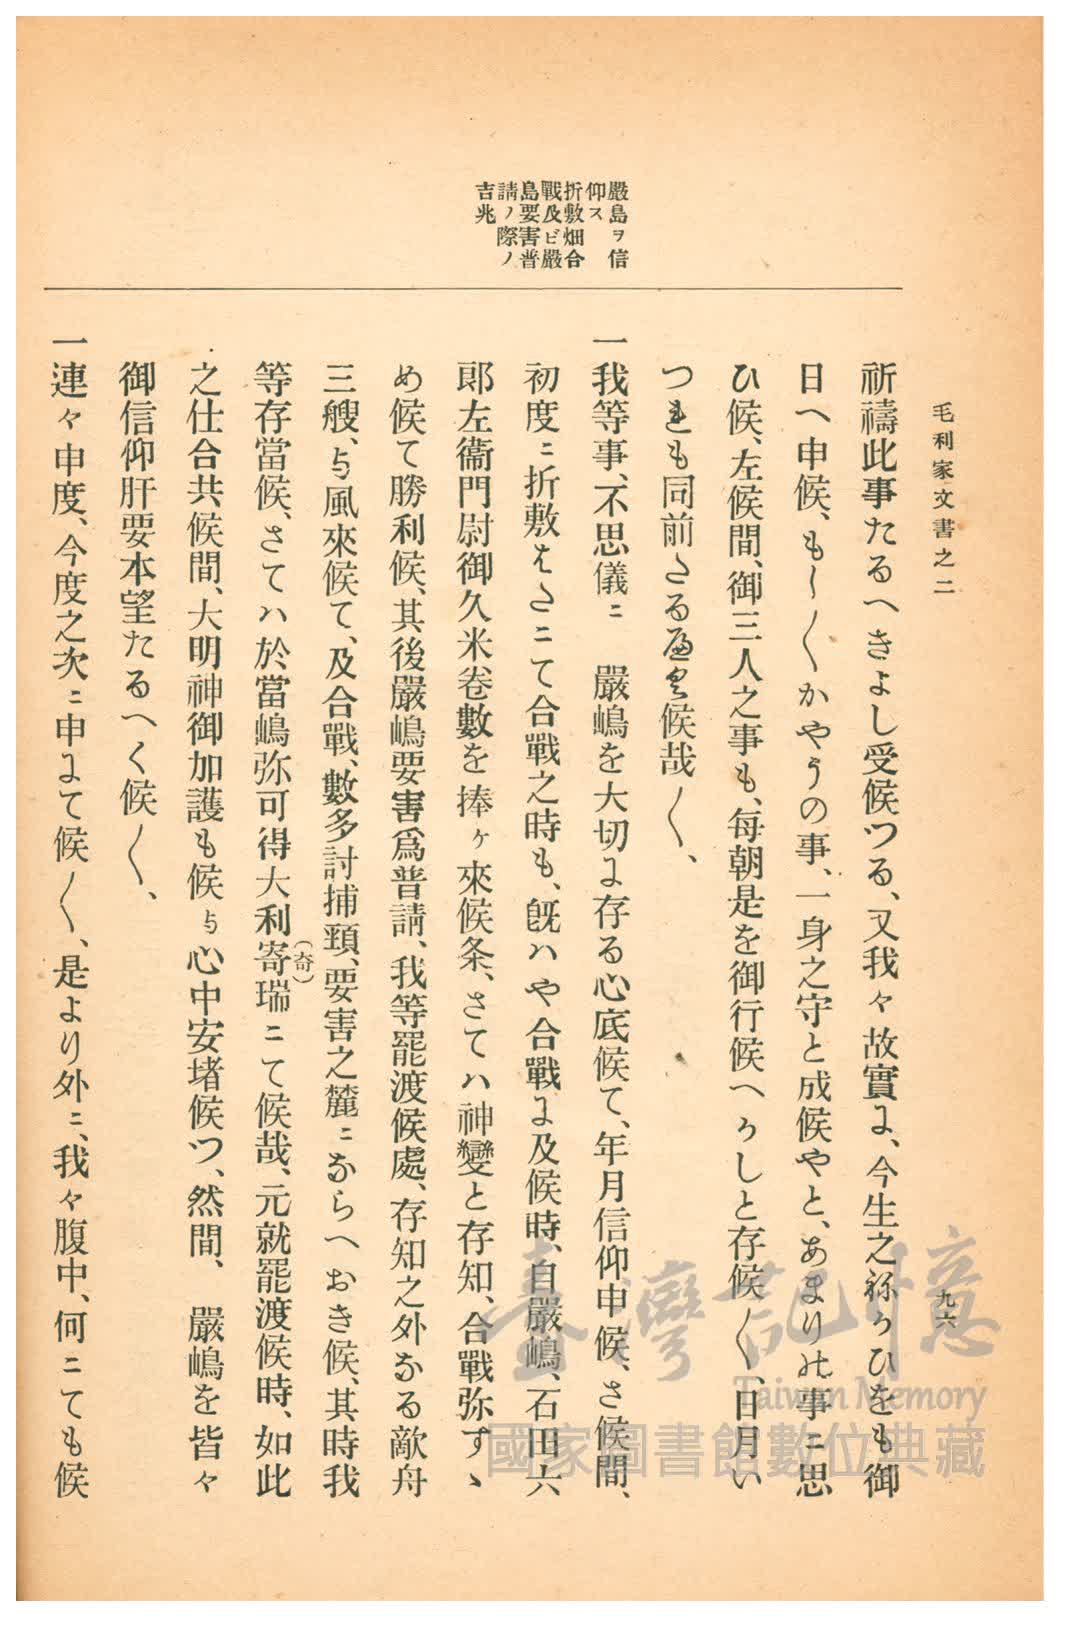 毛利家文書之二
九六
嚴島ヲ信
仰ス
折敷畑合
戰及ビ嚴
島要害普
請ノ際ノ
吉兆
祈禱此事たるへきよし受候つる、又我々故實ニ、今生之祢かひをも御
日へ申候、も〳〵かやうの事、一身之守と成候やと、あまりの事ニ思
ひ候、左候間、御三人之事も、每朝是を御行候へかしと存候〳〵、日月い
つれも同前たる候哉〳〵、
一我等事、不思儀ニ　嚴嶋を大切に存る心底候て、年月信仰申候、さ候間、
初度ニ折敷はたニて合戰之時も、旣ハや合戰に及候時、自嚴嶋、石田六
郎左衞門尉御久米卷數を捧ヶ來候条、さてハ神變と存知、合戰弥すゝ
め候て勝利候、其後嚴嶋要害爲普請、我等罷渡候處、存知之外なる敵舟
三艘、与風來候て、及合戰、數多討捕頸、要害之麓ニならへおき候、其時我
等存當候、さてハ於當嶋弥可得大利寄瑞ニて候哉、元就罷渡候時、如此
（奇）
之仕合共候間、大明神御加護も候与心中安堵候つ、然間、　嚴嶋を皆々
御信仰肝要本望たるへく候〳〵、
一連々申度、今度之次ニ申にて候〳〵、是より外ニ、我々腹中、何ニても候
臺灣記憶
Taiwan Memory
國家圖書館數位典藏